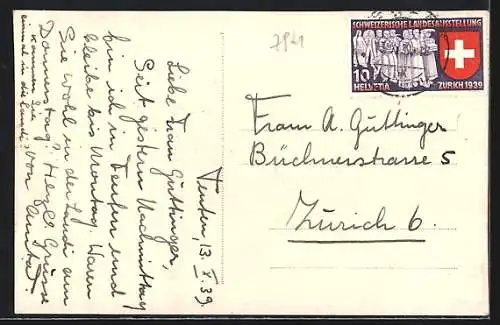 7941
SCHWEIZERISCHE LANDESAUSSTELLUNG
10
HELVETIA
ZURICH 1939
Frau A. Güttinger
Büchnerstrasse 5
Zürich 6.
Teufen, 13. X. 39.
Liebe Frau Güttinger,
Seit gestern Nachmittag
bin ich in Teufen und
bleibe bis Montag. Waren
Sie wohl in der Landi am
Donnerstag? Herzl. Grüsse
von
kommen Sie
einmal in die Landi?